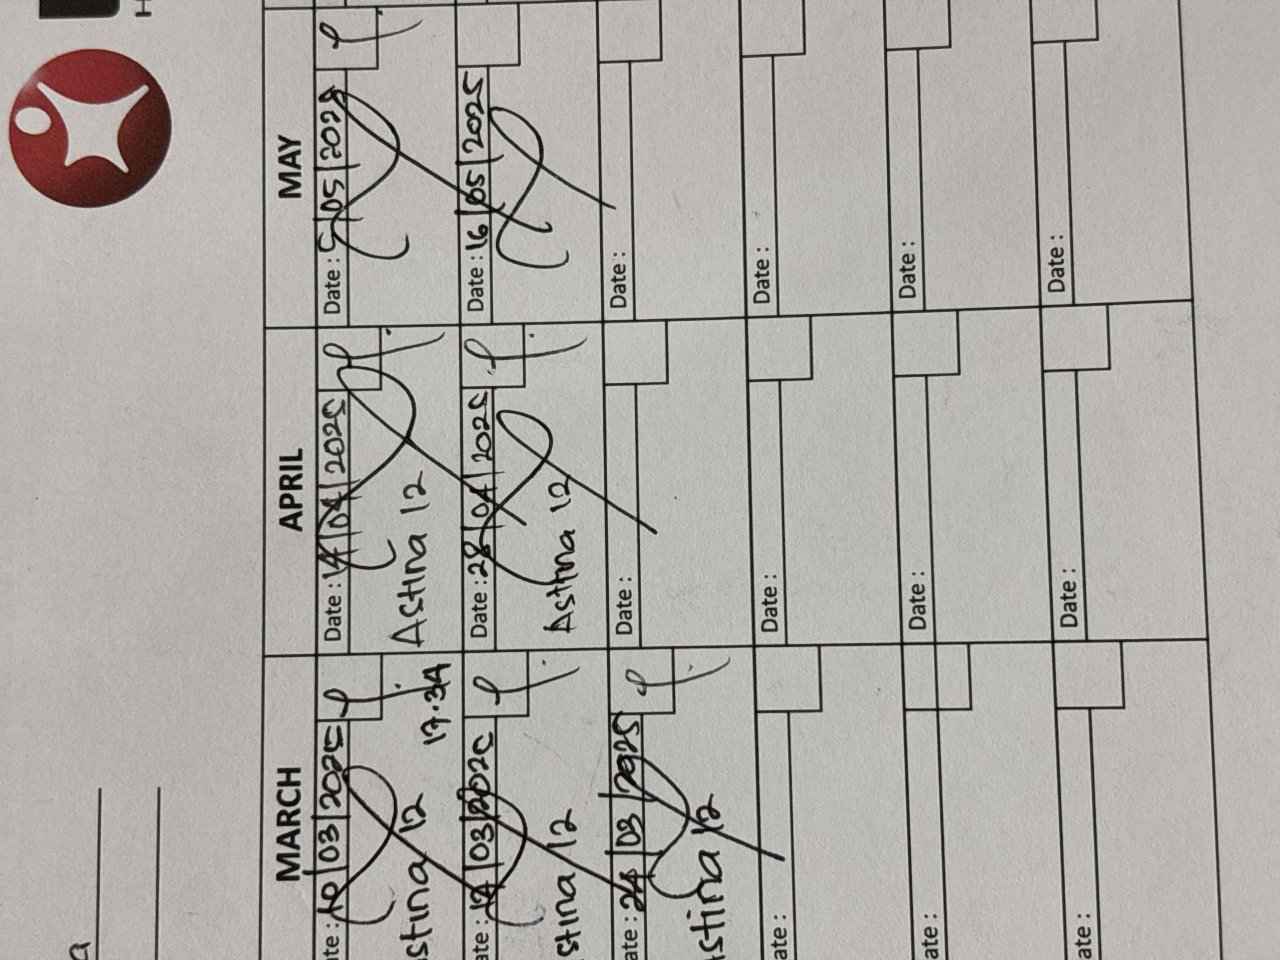 MARCH APRIL MAY
ate : 10 | 03 | 2025
stina 12
17.34
Date : 14 | 04 | 2025
Astina 12
Date : 5 | 05 | 2025
ate : 17 | 03 | 2025
stina 12
Date : 28 | 04 | 2025
Astina 12
Date : 16 | 05 | 2025
ate : 24 | 03 | 2025
stina 12
Date :
Date :
ate :
Date :
Date :
ate :
Date :
Date :
ate :
Date :
Date :
a
H